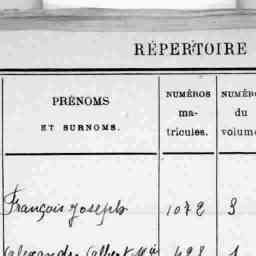 RÉPERTOIRE
PRÉNOMS
ET SURNOMS.
NUMÉROS
ma-
tricules.
NUMÉRO
du
volume
François Joseph 1072 3
Alexandre Albert 428 1